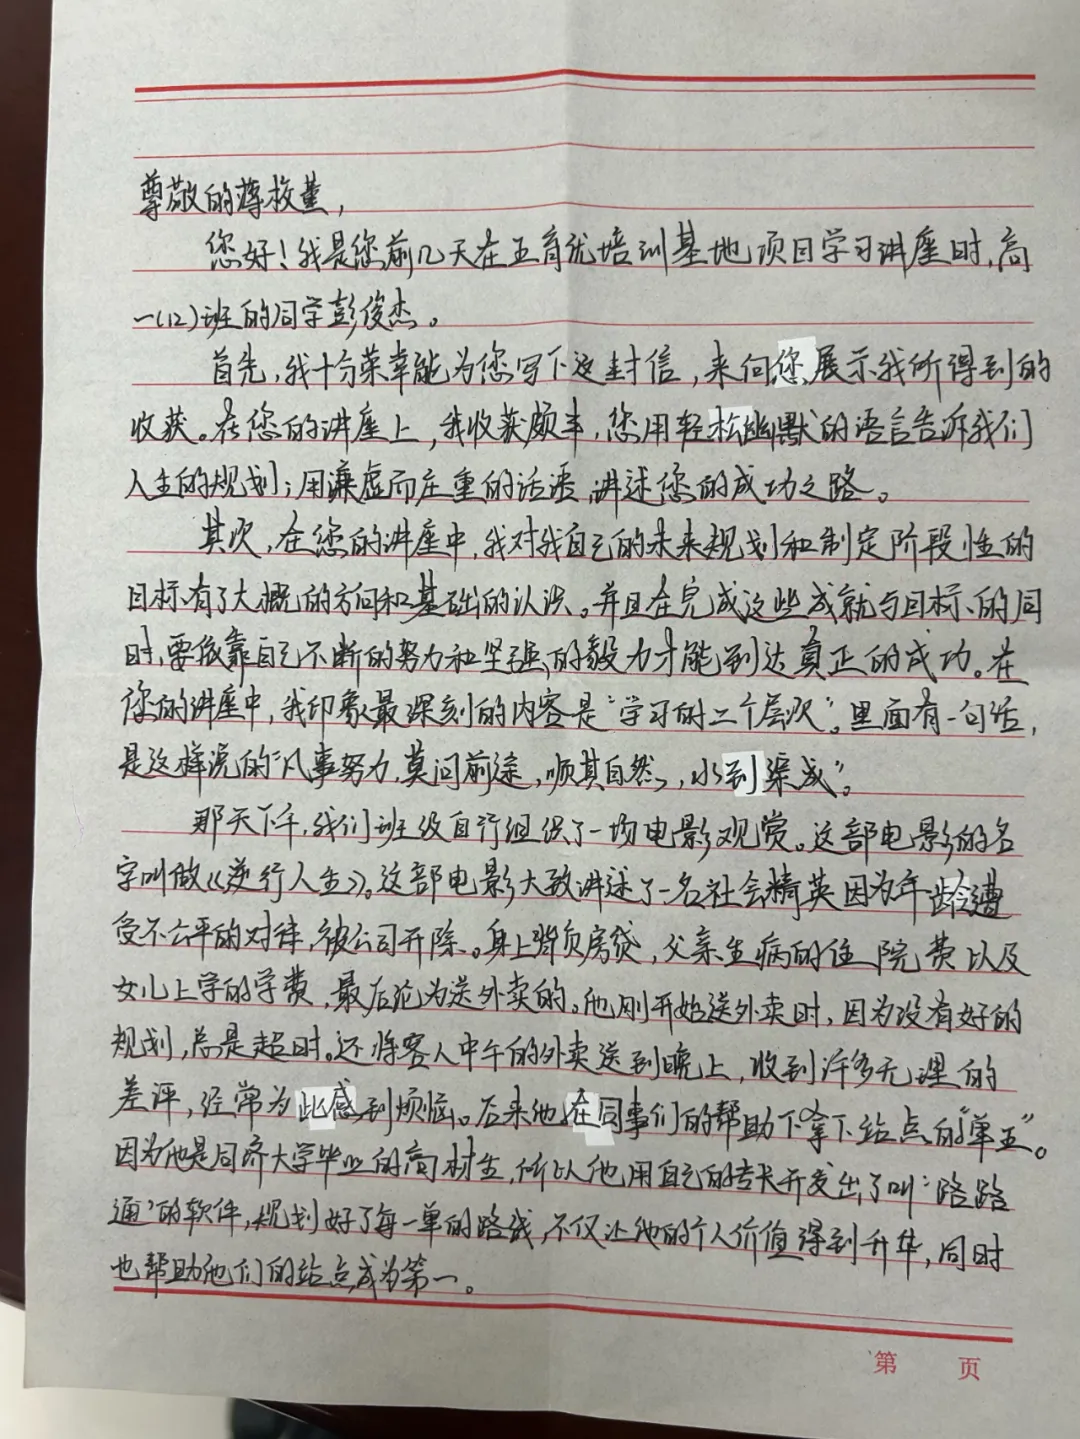 尊敬的薄校董，
您好！我是您前几天在五育优培训基地项目学习讲座时，高
一(12)班的同学彭俊杰。
首先，我十分荣幸能为您写下这封信，来向您展示我所得到的
收获。在您的讲座上，我收获颇丰，您用轻松幽默的语言告诉我们
人生的规划；用谦虚而庄重的话语，讲述您的成功之路。
其次，在您的讲座中，我对我自己的未来规划和制定阶段性的
目标有了大概的方向和基础的认识。并且在完成这些成就与目标的同
时，要依靠自己不断的努力和坚强的毅力才能到达真正的成功。在
您的讲座中，我印象最深刻的内容是“学习的二个层次”。里面有一句话，
是这样说的“凡事努力，莫问前途，顺其自然，水到渠成”。
那天下午，我们班级自行组织了一场电影观赏。这部电影的名
字叫做《逆行人生》。这部电影大致讲述了一名社会精英因为年龄遭
受不公平的对待，被公司开除。身上背负房贷，父亲生病的住院费以及
女儿上学的学费，最后沦为送外卖的。他刚开始送外卖时，因为没有好的
规划，总是超时。还将客人中午的外卖送到晚上，收到许多无理的
差评，经常为此感到烦恼。后来他在同事们的帮助下拿下站点的“单王”。
因为他是同济大学毕业的高材生，所以他用自己的专长开发出了叫“路路
通”的软件，规划好了每一单的路线，不仅让他的个人价值得到升华，同时
也帮助他们的站点成为第一。
第 页